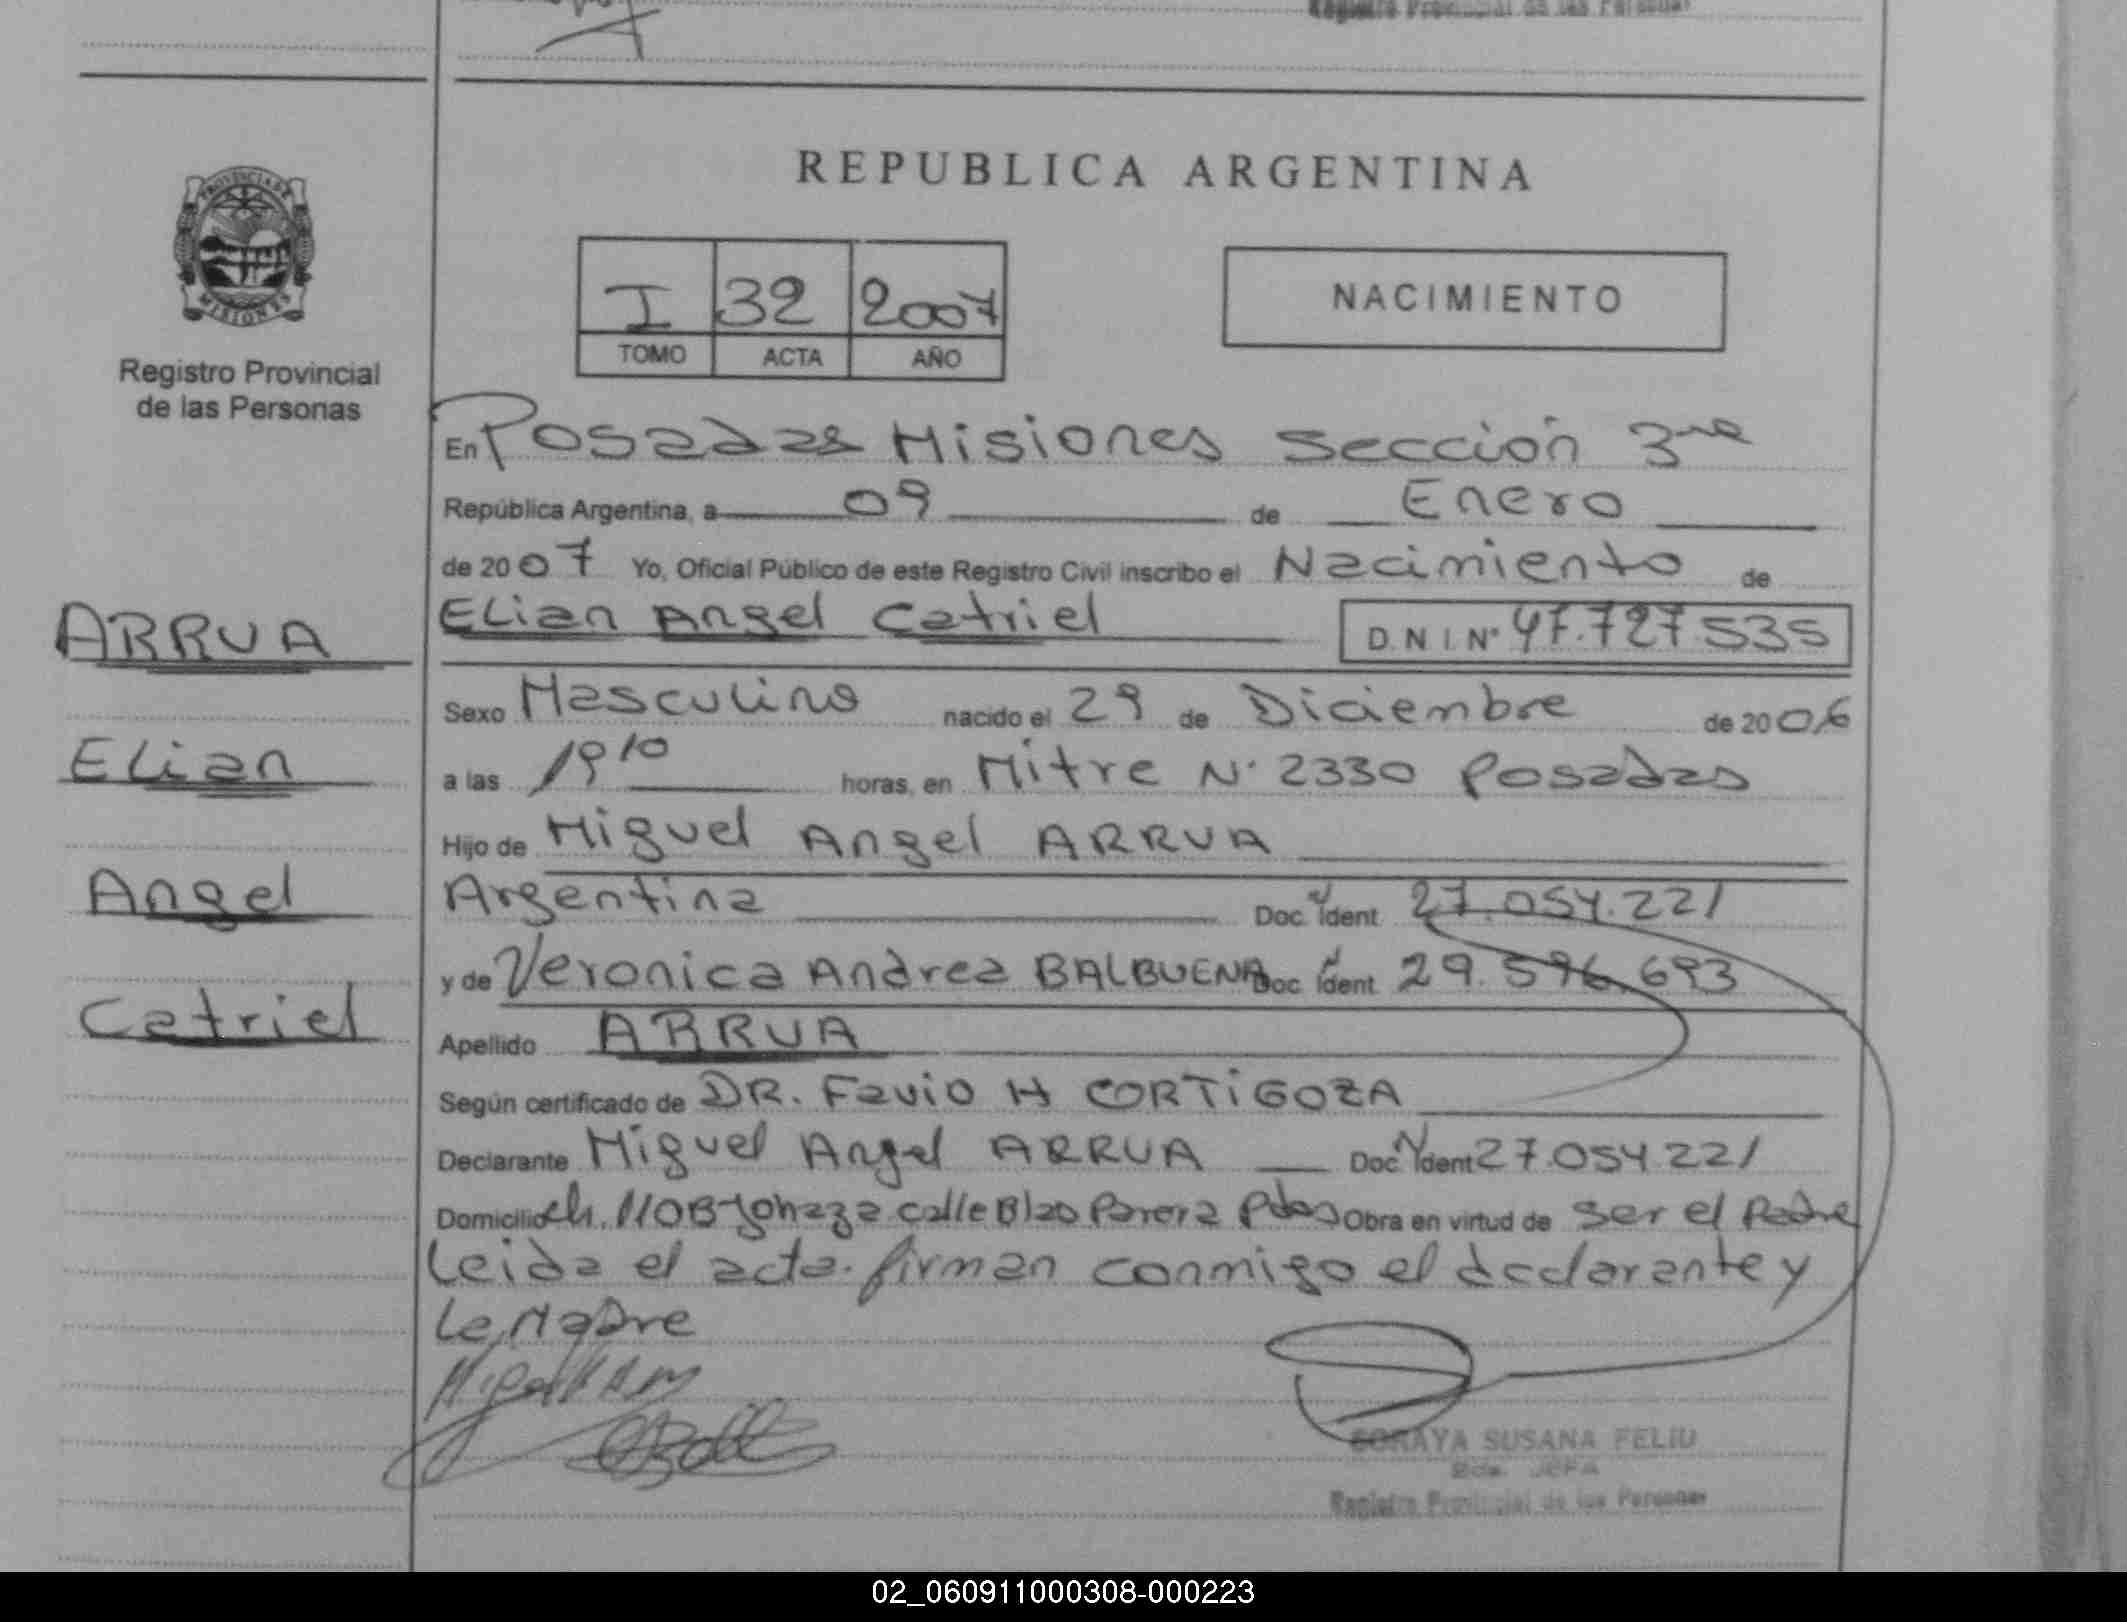 Registro Provincial de las Personas
REPUBLICA ARGENTINA
PROVINCIA DE
MISIONES
Registro Provincial
de las Personas
I 32 2007
TOMO ACTA AÑO
NACIMIENTO
En Posadas Misiones sección 3ra
República Argentina, a 09 de Enero
de 2007 Yo, Oficial Público de este Registro Civil inscribo el Nacimiento de
ELian Angel Catriel D.N.I. Nº 47.727.535
ARRUA
ELian
Angel
Catriel
Sexo Masculino nacido el 29 de Diciembre de 2006
a las 19 10 horas, en Mitre Nº 2330 Posadas
Hijo de Miguel Angel ARRUA
Argentina Doc. Ident 27.054.221
y de Veronica Andrea BALBUENA Doc Ident 29.596.693
Apellido ARRUA
Según certificado de DR. Favio H CORTIGOZA
Declarante Miguel Angel ARRUA Doc. Ident 27.054.221
Domicilio ch. 110 B calle Blas Parera Pdas Obra en virtud de ser el Padre
Leida el acta. firman conmigo el declarante y
La Madre
SORAYA SUSANA FELIU
JEFA
Registro Provincial de las Personas
02_060911000308-000223